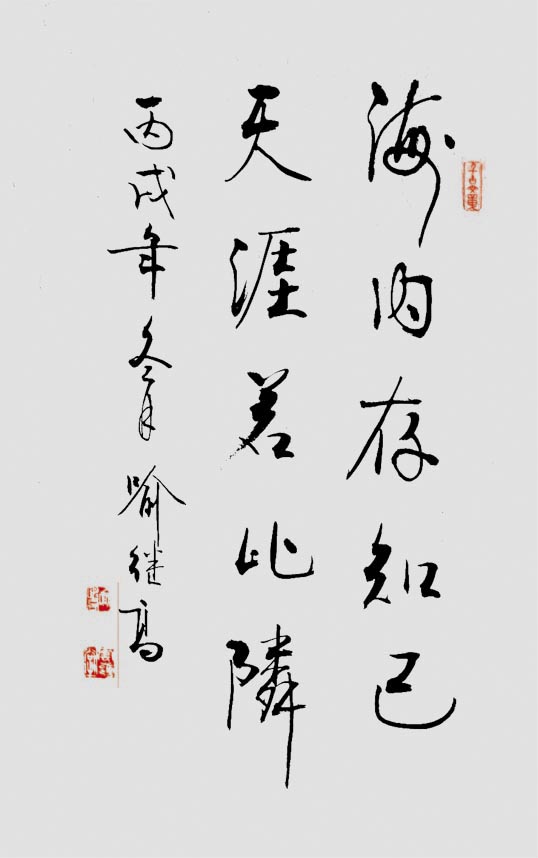 海内存知己
天涯若比隣
丙戌年冬月 喻继高